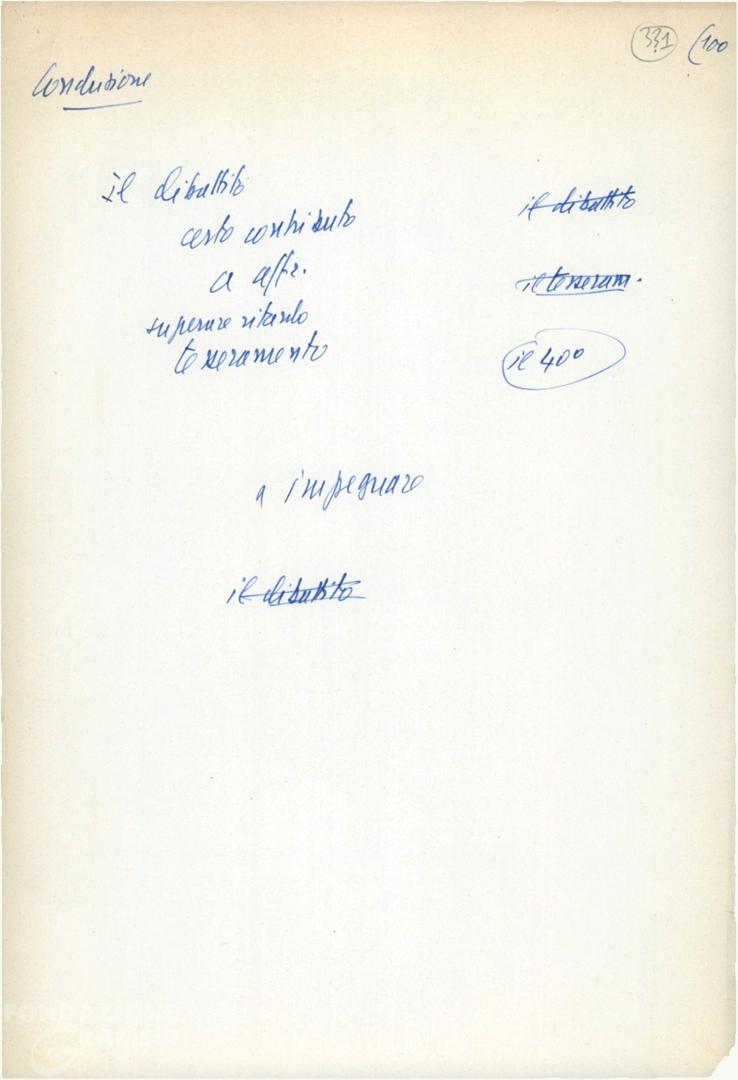 331 (100
Conclusione
il dibattito
certo contributo
a affr.
superare ritardo
tesseramento
il dibattito
il tesseram.
il 400
a impegnare
il dibattito
FONDAZIONE
GRAMSCI